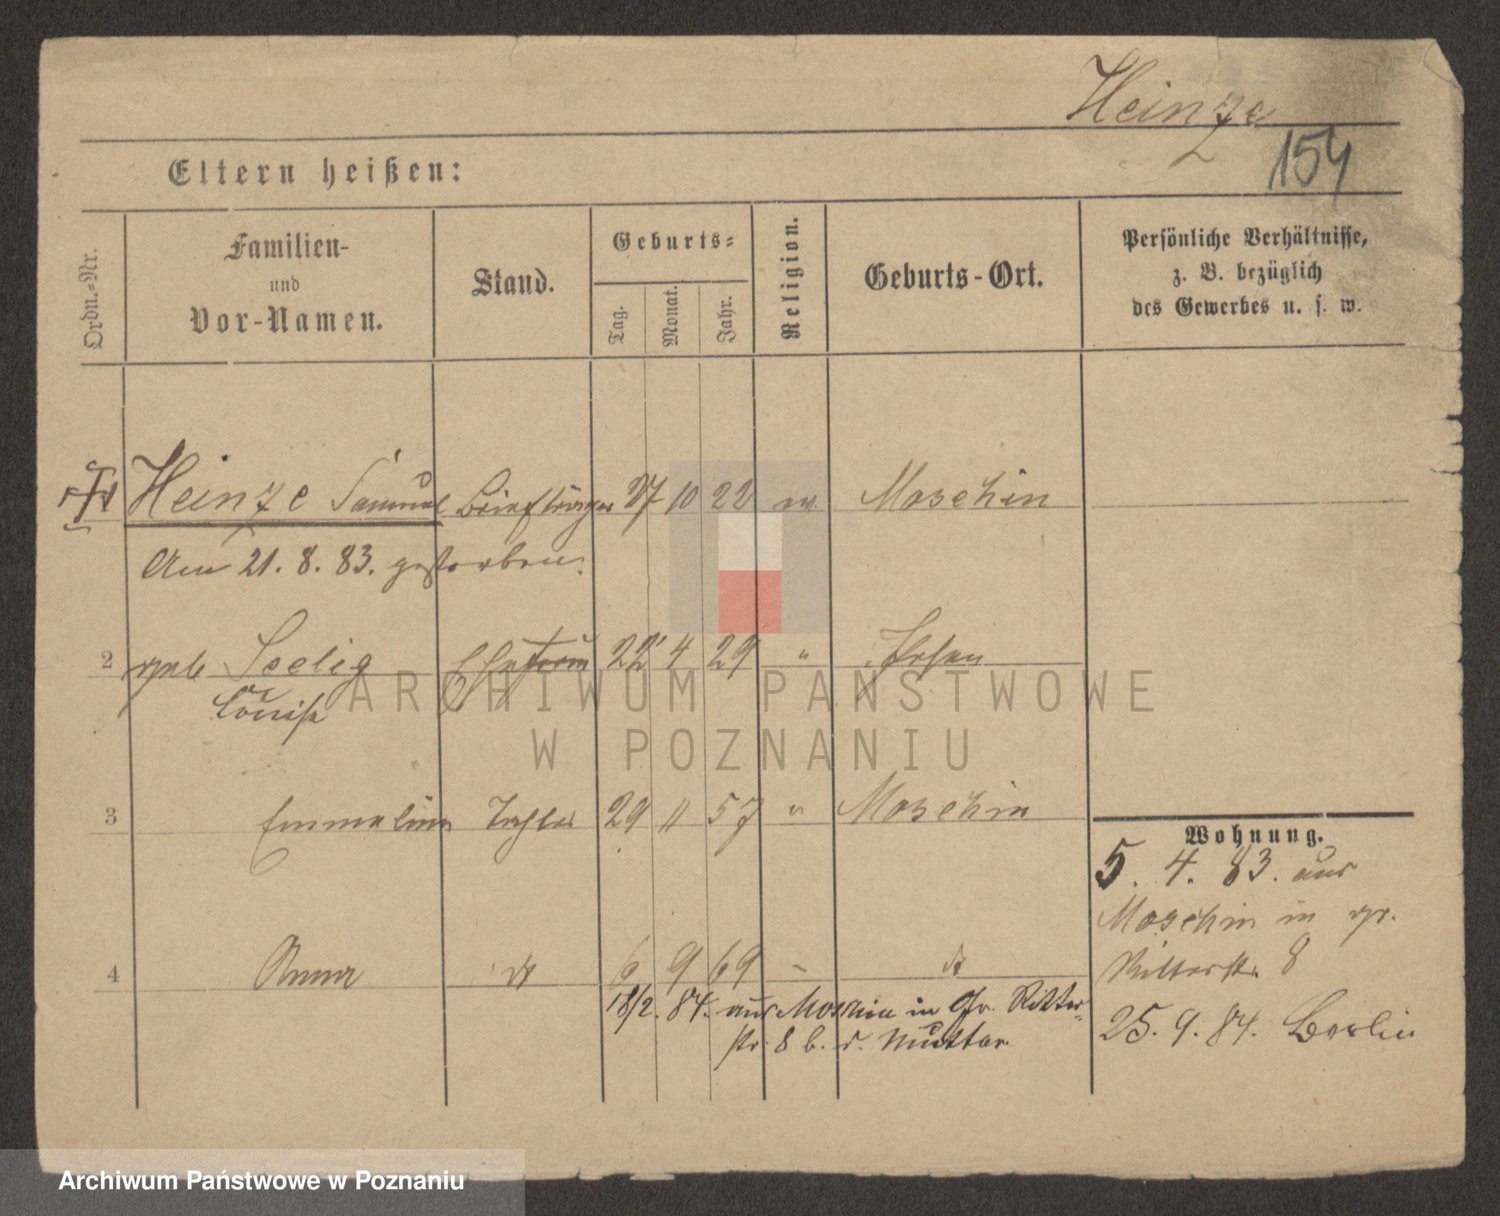 Heinze
154
Eltern heißen:
Ordn.-Nr.
Familien-
und
Vor-Namen.
Stand.
Geburts-
Tag.
Monat.
Jahr.
Religion.
Geburts-Ort.
Persönliche Verhältnisse,
z. B. bezüglich
des Gewerbes u. s. w.
Heinze Samuel Briefträger 27 10 22 ev. Moschin
Am 21. 8. 83. gestorben.
2 geb Seelig Ehefrau 22 4 29 "
Louise
3 Emmeline Tochter 29 11 57 " Moschin
4 Anna dt 6 9 69 - dt
18/2. 84. aus Moschin in Gr. Ritter-
str. 8 b. d. Mutter
Wohnung.
5. 4. 83. aus
Moschin in gr.
Ritterstr. 8
25. 9. 84. Berlin
ARCHIWUM PAŃSTWOWE
W POZNANIU
Archiwum Państwowe w Poznaniu